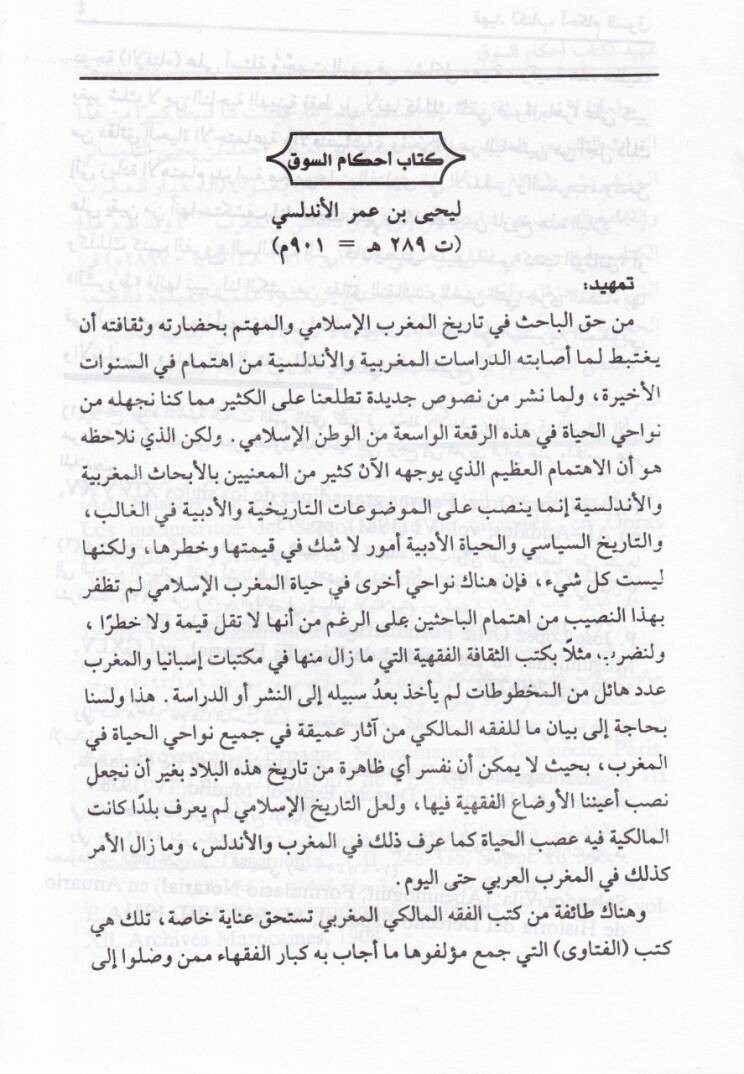 كتاب أحكام السوق
ليحيى بن عمر الأندلسي
(ت ٢٨٩ هـ = ٩٠١م)
تمهيد:
من حق الباحث في تاريخ المغرب الإسلامي والمهتم بحضارته وثقافته أن
يغتبط لما أصابته الدراسات المغربية والأندلسية من اهتمام في السنوات
الأخيرة، ولما نشر من نصوص جديدة تطلعنا على الكثير مما كنا نجهله من
نواحي الحياة في هذه الرقعة الواسعة من الوطن الإسلامي. ولكن الذي نلاحظه
هو أن الاهتمام العظيم الذي يوجهه الآن كثير من المعنيين بالأبحاث المغربية
والأندلسية إنما ينصب على الموضوعات التاريخية والأدبية في الغالب،
والتاريخ السياسي والحياة الأدبية أمور لا شك في قيمتها وخطرها، ولكنها
ليست كل شيء، فإن هناك نواحي أخرى في حياة المغرب الإسلامي لم تظفر
بهذا النصيب من اهتمام الباحثين على الرغم من أنها لا تقل قيمة ولا خطرًا،
ولنضرب مثلاً بكتب الثقافة الفقهية التي ما زال منها في مكتبات إسبانيا والمغرب
عدد هائل من المخطوطات لم يأخذ بعدُ سبيله إلى النشر أو الدراسة. هذا ولسنا
بحاجة إلى بيان ما للفقه المالكي من آثار عميقة في جميع نواحي الحياة في
المغرب، بحيث لا يمكن أن نفسر أي ظاهرة من تاريخ هذه البلاد بغير أن نجعل
نصب أعيننا الأوضاع الفقهية فيها، ولعل التاريخ الإسلامي لم يعرف بلدًا كانت
المالكية فيه عصب الحياة كما عرف ذلك في المغرب والأندلس، وما زال الأمر
كذلك في المغرب العربي حتى اليوم.
وهناك طائفة من كتب الفقه المالكي المغربي تستحق عناية خاصة، تلك هي
كتب (الفتاوى) التي جمع مؤلفوها ما أجاب به كبار الفقهاء ممن وصلوا إلى